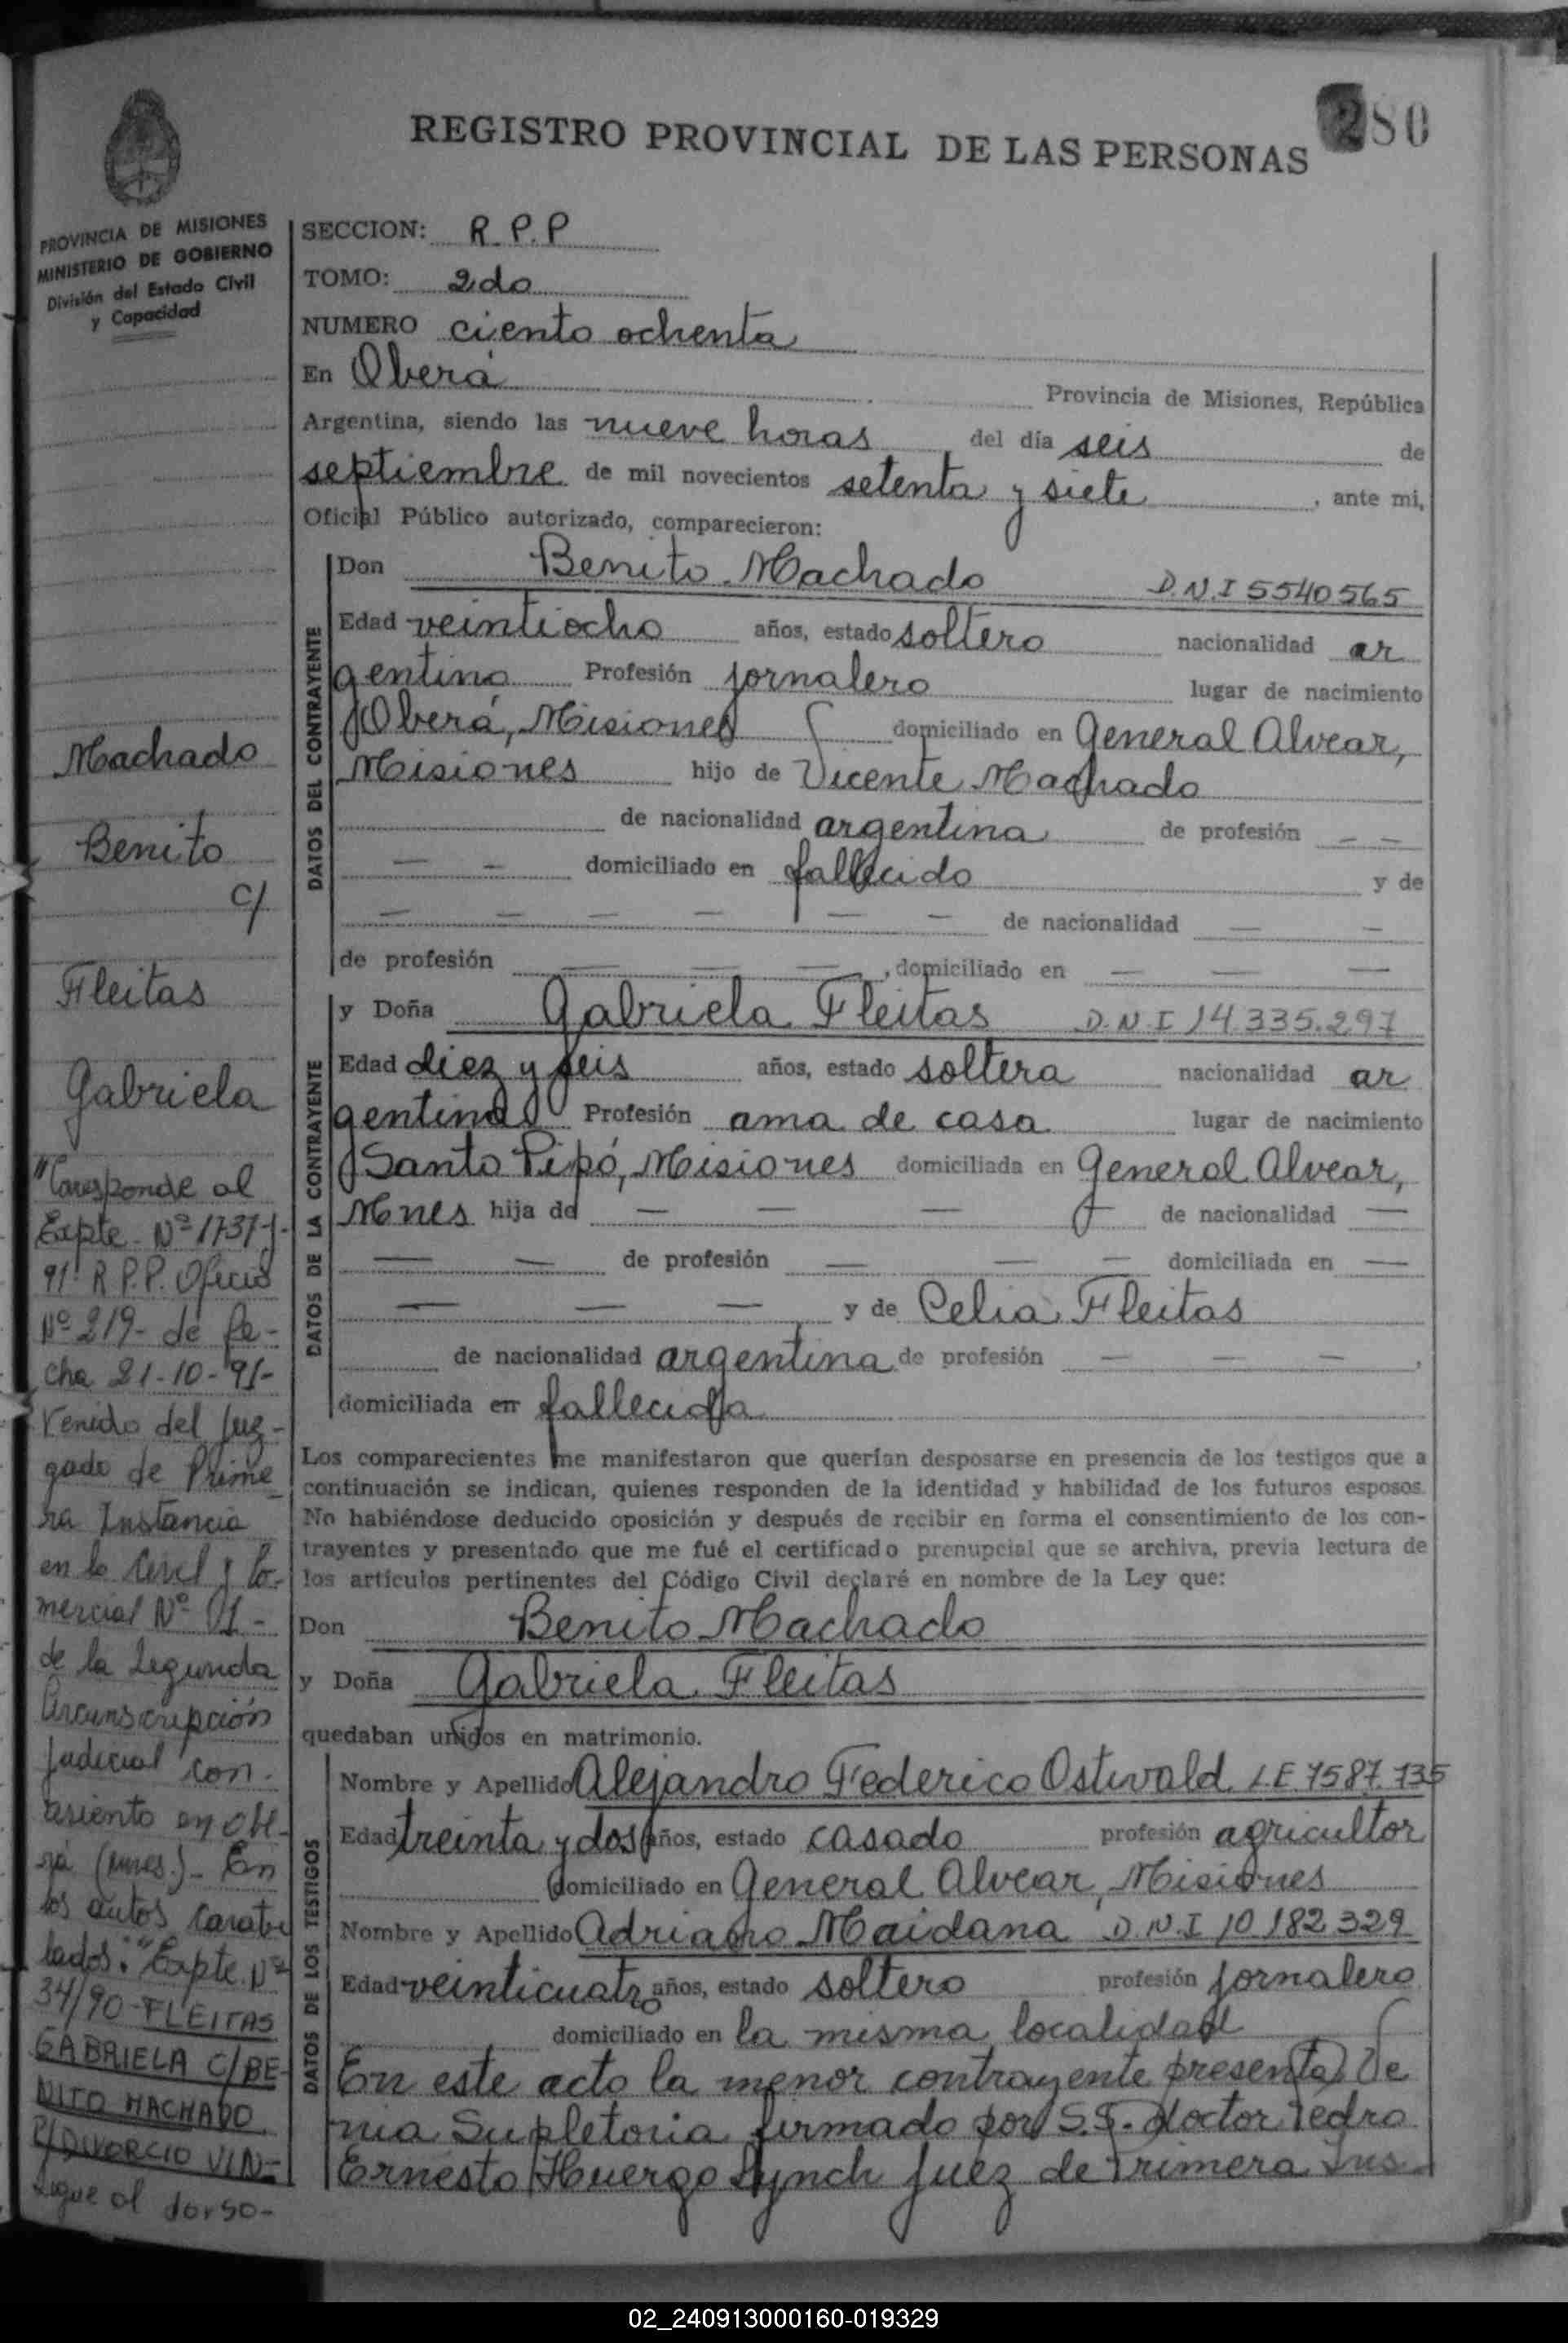 280
REGISTRO PROVINCIAL DE LAS PERSONAS
PROVINCIA DE MISIONES
MINISTERIO DE GOBIERNO
División del Estado Civil
y Capacidad
SECCION: R.P.P
TOMO: 2do
NUMERO ciento ochenta
En Oberá Provincia de Misiones, República
Argentina, siendo las nueve horas del día seis de
septiembre de mil novecientos setenta y siete, ante mi,
Oficial Público autorizado, comparecieron:
DATOS DEL CONTRAYENTE
Don Benito Machado D.N.I 5540565
Edad veintiocho años, estado soltero nacionalidad ar
gentino Profesión jornalero lugar de nacimiento
Oberá, Misiones domiciliado en General Alvear,
Misiones hijo de Vicente Machado
de nacionalidad argentina de profesión — —
— — domiciliado en fallecido y de
— — — — — — de nacionalidad — —
de profesión — — —, domiciliado en — — —
DATOS DE LA CONTRAYENTE
y Doña Gabriela Fleitas D.N.I 14.335.297
Edad diez y seis años, estado soltera nacionalidad ar
gentina Profesión ama de casa lugar de nacimiento
Santo Pipó, Misiones domiciliada en General Alvear,
Mnes hija de — — — de nacionalidad —
— — de profesión — — — domiciliada en —
— — — y de Celia Fleitas
de nacionalidad argentina de profesión — — —,
domiciliada en fallecida
Los comparecientes me manifestaron que querían desposarse en presencia de los testigos que a
continuación se indican, quienes responden de la identidad y habilidad de los futuros esposos.
No habiéndose deducido oposición y después de recibir en forma el consentimiento de los con-
trayentes y presentado que me fué el certificado prenupcial que se archiva, previa lectura de
los artículos pertinentes del Código Civil declaré en nombre de la Ley que:
Don Benito Machado
y Doña Gabriela Fleitas
quedaban unidos en matrimonio.
DATOS DE LOS TESTIGOS
Nombre y Apellido Alejandro Federico Ostwald L.E 7587.735
Edad treinta y dos años, estado casado profesión agricultor
domiciliado en General Alvear, Misiones
Nombre y Apellido Adriano Maidana D.N.I 10.182.329
Edad veinticuatro años, estado soltero profesión jornalero
domiciliado en la misma localidad
En este acto la menor contrayente presenta Ve
nia Supletoria firmado por S.S. doctor Pedro
Ernesto Huergo Lynch Juez de Primera Ins
Machado
Benito
c/
Fleitas
Gabriela
"Coresponde al
Expte. Nº 1737-J-
91! R.P.P. Oficio
Nº 219- de fe-
cha 21-10-91-
Venido del Juz-
gado de Prime
ra Instancia
en lo Civil y Co-
mercial Nº 01-
de la Segunda
Circunscripción
Judicial con
asiento en Obe-
rá (mnes.)- En
los autos Caratu
lados: "Expte. Nº
34/90- FLEITAS
GABRIELA C/BE-
NITO MACHADO
P/DIVORCIO VIN-
sigue al dorso-
02_240913000160-019329